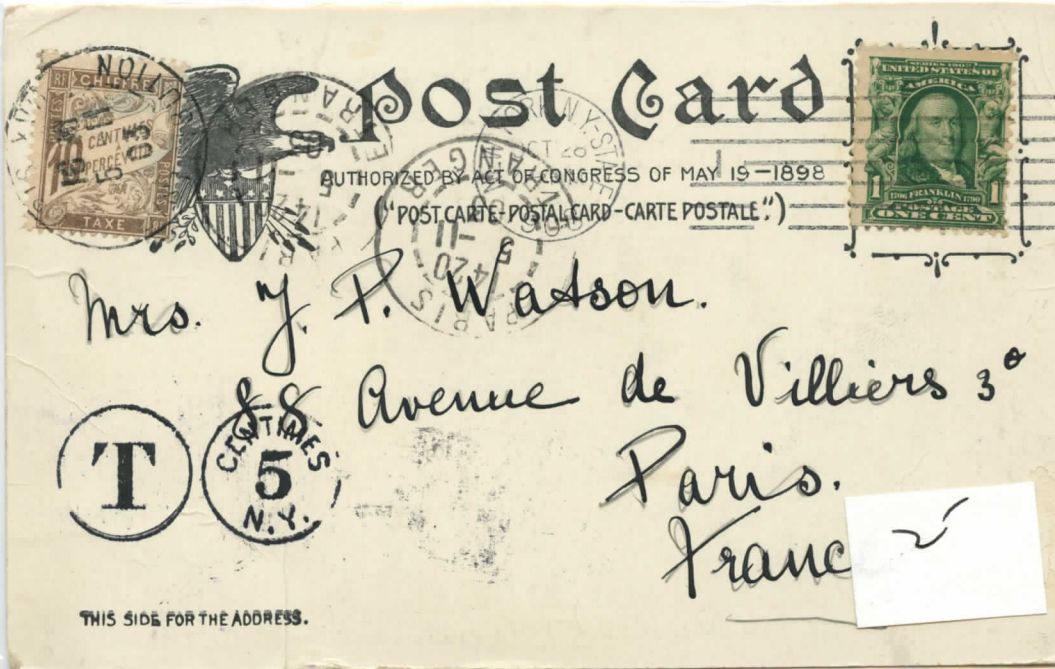 Post Card
AUTHORIZED BY ACT OF CONGRESS OF MAY 19-1898
("POST CARTE-POSTAL CARD-CARTE POSTALE".)
RF CHIFFRE
10 CENTIMES
À
PERCEVOIR
POSTES
TAXE
SERIES 1902
UNITED STATES OF
AMERICA
1 1
1706 FRANKLIN 1790
POSTAGE
ONE CENT
N.Y-STA
OCT 28
PARIS
ETRANGER
Mrs. J. P. Watson.
88 Avenue de Villiers 3º
Paris.
Franc
T
CENTIMES
5
N.Y.
THIS SIDE FOR THE ADDRESS.